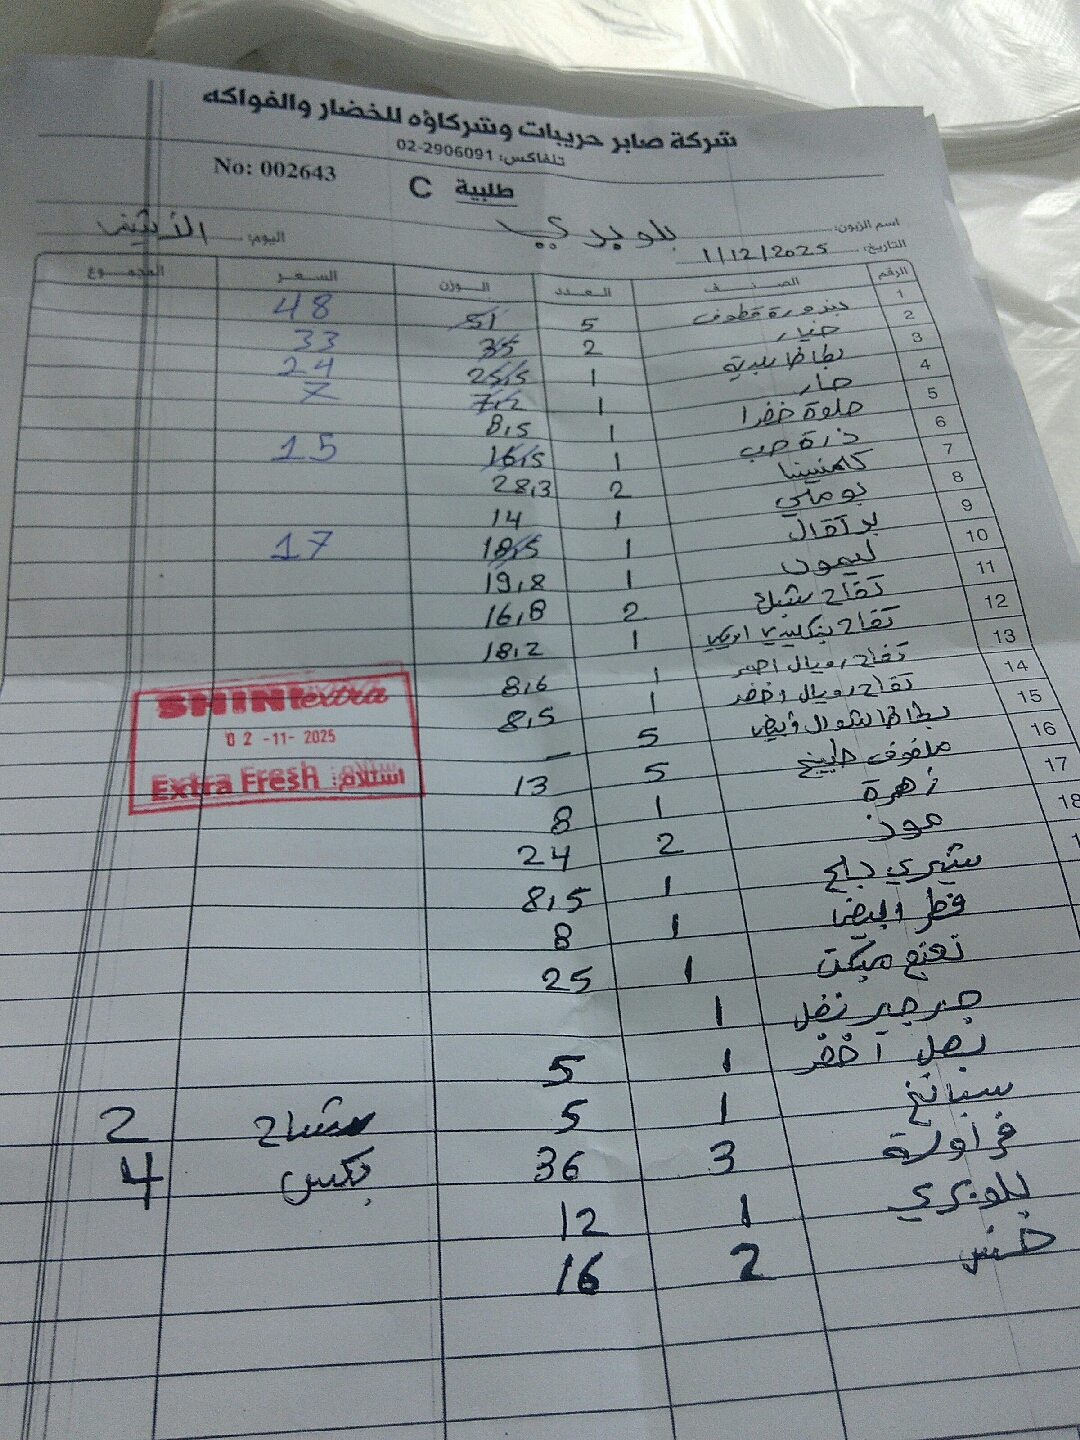 شركة صابر حريبات وشركاؤه للخضار والفواكه
تلفاكس: 02-2906091
No: 002643
طلبية C
اسم الزبون: بلوبري
اليوم: الأثنين
التاريخ: 1/12/2025
الرقم الصنف العدد الوزن السعر المجموع
1 بندورة قطوف 5 51 48
2 خيار 2 35 33
3 بطاطا بلدية 1 25,5 24
4 حار 1 7,2 7
5 حلوة خضرا 1 8,5
6 ذرة حب 1 16,5 15
7 كلمنتينا 2 28,3
8 بوملي 1 14
9 برتقال 1 18,5 17
10 ليمون 1 19,8
11 تفاح 2 16,8
12 تفاح 1 18,2
13 تفاح رويال احمر 1 8,6
14 تفاح رويال اخضر 1 8,5
15 بطاطا شوال 5 –
16 ملفوف طبيخ 5 13
17 زهرة 1 8
18 موز 2 24
شيري بلح 1 8,5
فطر ابيض 1 8
نعنع 1 25
جرجير 1
بصل أخضر 1 5
سبانخ 1 5
فراولة 3 36
بلوبري 1 12
خس 2 16
مشاح 2
بكس 4
SHINI extra
02 -11- 2025
Extra Fresh استلام: